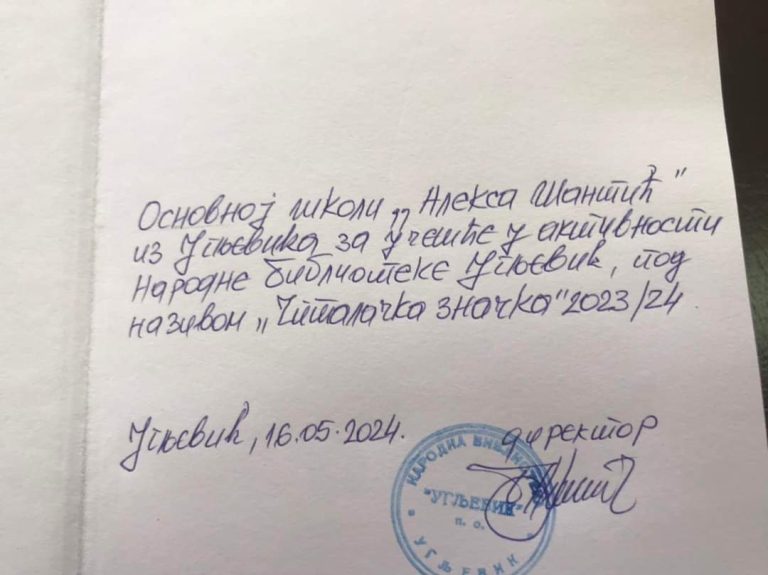 Основној школи „Алекса Шантић"
из Угљевика за учешће у активности
Народне библиотеке Угљевик, под
називом „Читалачка значка" 2023/24
Угљевик, 16.05.2024.
директор
НАРОДНА БИБЛИ
"УГЉЕВИК"
п. о.
УГЉЕВИК